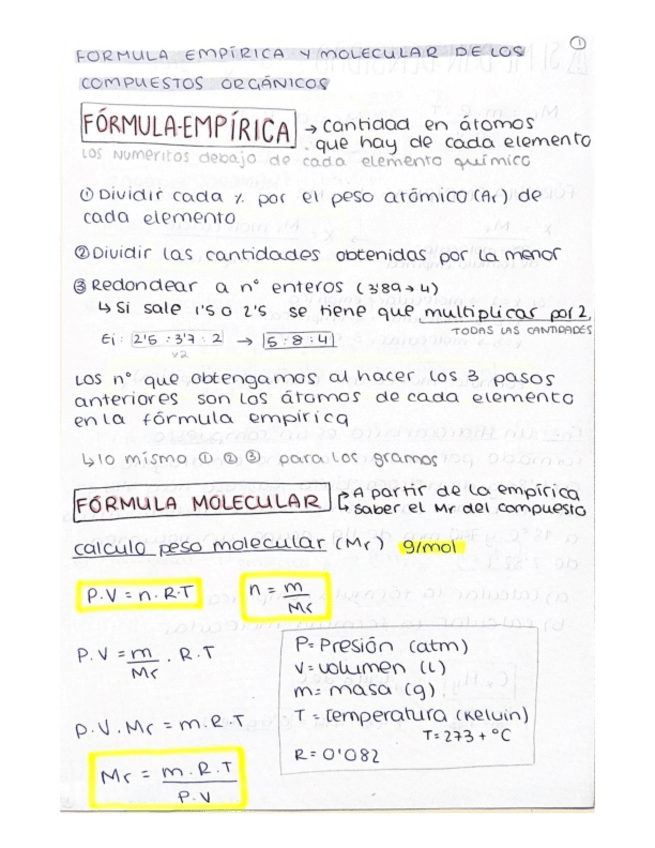 ①
FORMULA EMPÍRICA Y MOLECULAR DE LOS
COMPUESTOS ORGÁNICOS
FÓRMULA-EMPÍRICA → cantidad en átomos
que hay de cada elemento
LOS NUMERITOS debajo de cada elemento químico
① Dividir cada % por el peso atómico (Ar) de
cada elemento
② Dividir las cantidades obtenidas por la menor
③ Redondear a nº enteros (3'89→4)
↳ Si sale 1'5 o 2'5 se tiene que multiplicar por 2
TODAS LAS CANTIDADES
Ej: 2'5 : 3'7 : 2 → 5 : 8 : 4
x2
Los nº que obtengamos al hacer los 3 pasos
anteriores son los átomos de cada elemento
en la fórmula empírica
↳ lo mismo ① ② ③ para los gramos
FÓRMULA MOLECULAR → A partir de la empírica
↳ Saber el Mr del compuesto
calculo peso molecular (Mr) g/mol
P.V = n.R.T n = m/Mr
P.V = m/Mr . R.T
P.V.Mr = m.R.T
Mr = m.R.T/P.V
P= Presión (atm)
V= volumen (L)
m= masa (g)
T = Temperatura (Kelvin)
T= 273 + ºC
R= 0'082